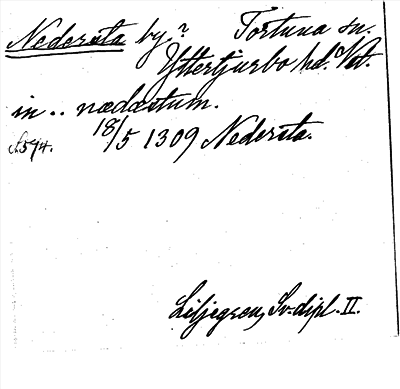 Nedersta by? Tortuna sn.
Yttertjurbo hd. Vst.
in .. nædæstum.
s. 594. 18/5 1309 Nedersta.
Liljegren, Sv. dipl. II.